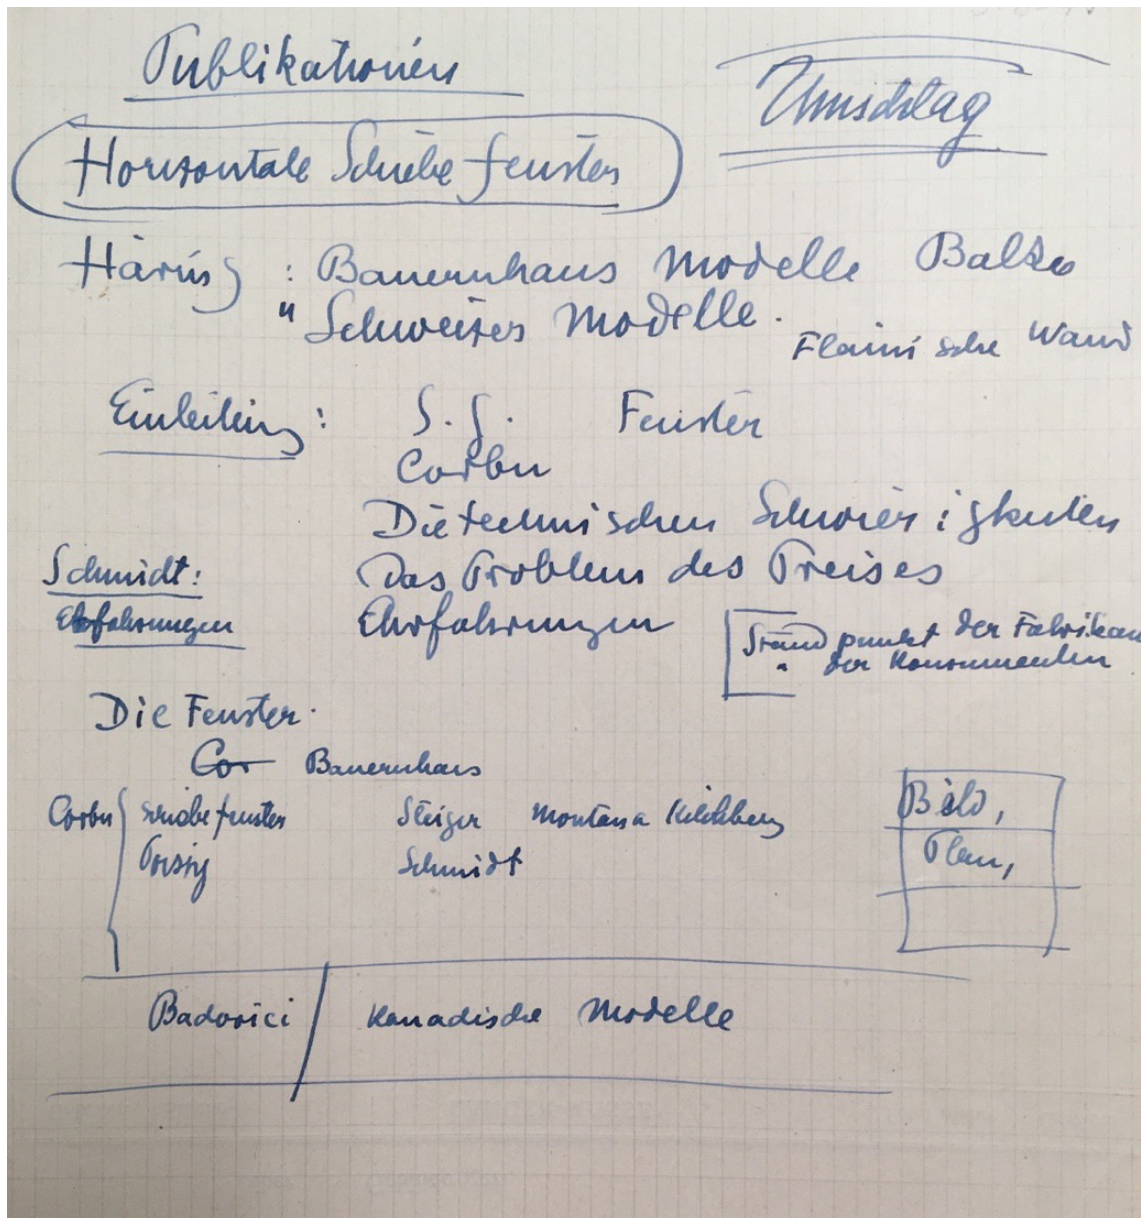 Publikationen
Umschlag
Horizontale Schiebefenster
Häring : Bauernhaus Modelle
" Schweizer Modelle.
Wand
Einleitung : S. G. Fenster
Corbu
Die technischen Schwierigkeiten
Das Problem des Preises
Schmidt:
Erfahrungen
Erfahrungen
Standpunkt der Fabrikan
" der Konsumenten
Die Fenster.
Cor Bauernhaus
Corbu Schiebefenster Steiger Montana Kilchberg
Schmidt
Bild,
Plan,
Badovici / Kanadische Modelle